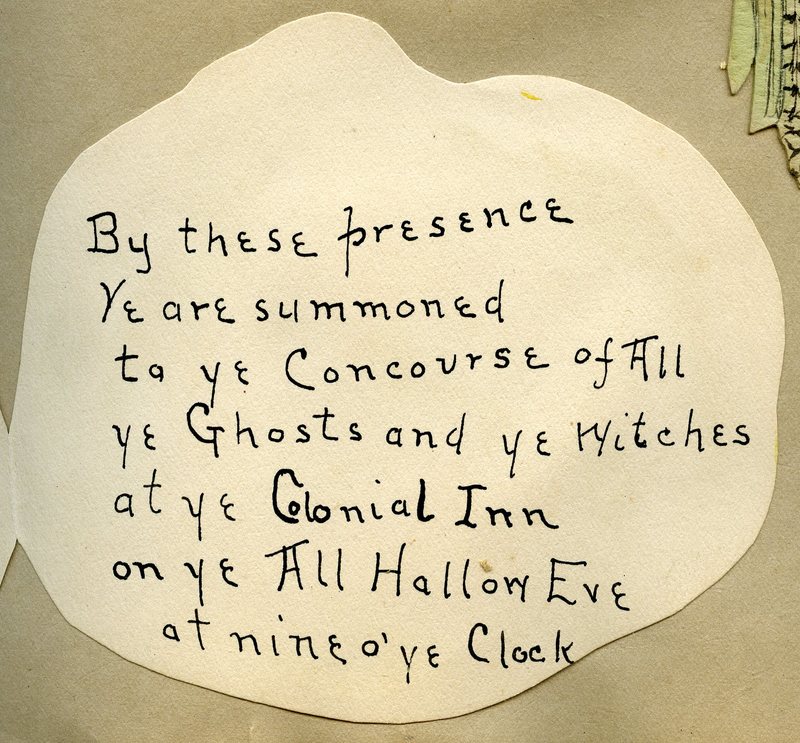 By these presence
Ye are summoned
to ye Concourse of All
ye Ghosts and ye Witches
at ye Colonial Inn
on ye All Hallow Eve
at nine o'ye Clock